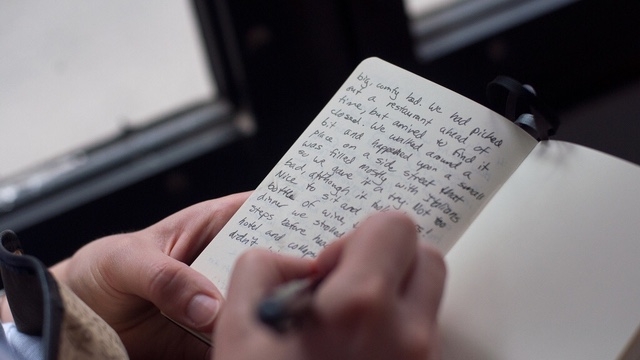 big, comfy bed. We had picked
out a restaurant ahead of
time, but arrived to find it
closed. We walked around a
bit and happened upon a small
place on a side street that
was filled mostly with Italians
so we gave it a try. Not too
bad, although it
Nice to sit and
bottle of wine,
dinner we strolled
steps before
hotel and collaps
didn't